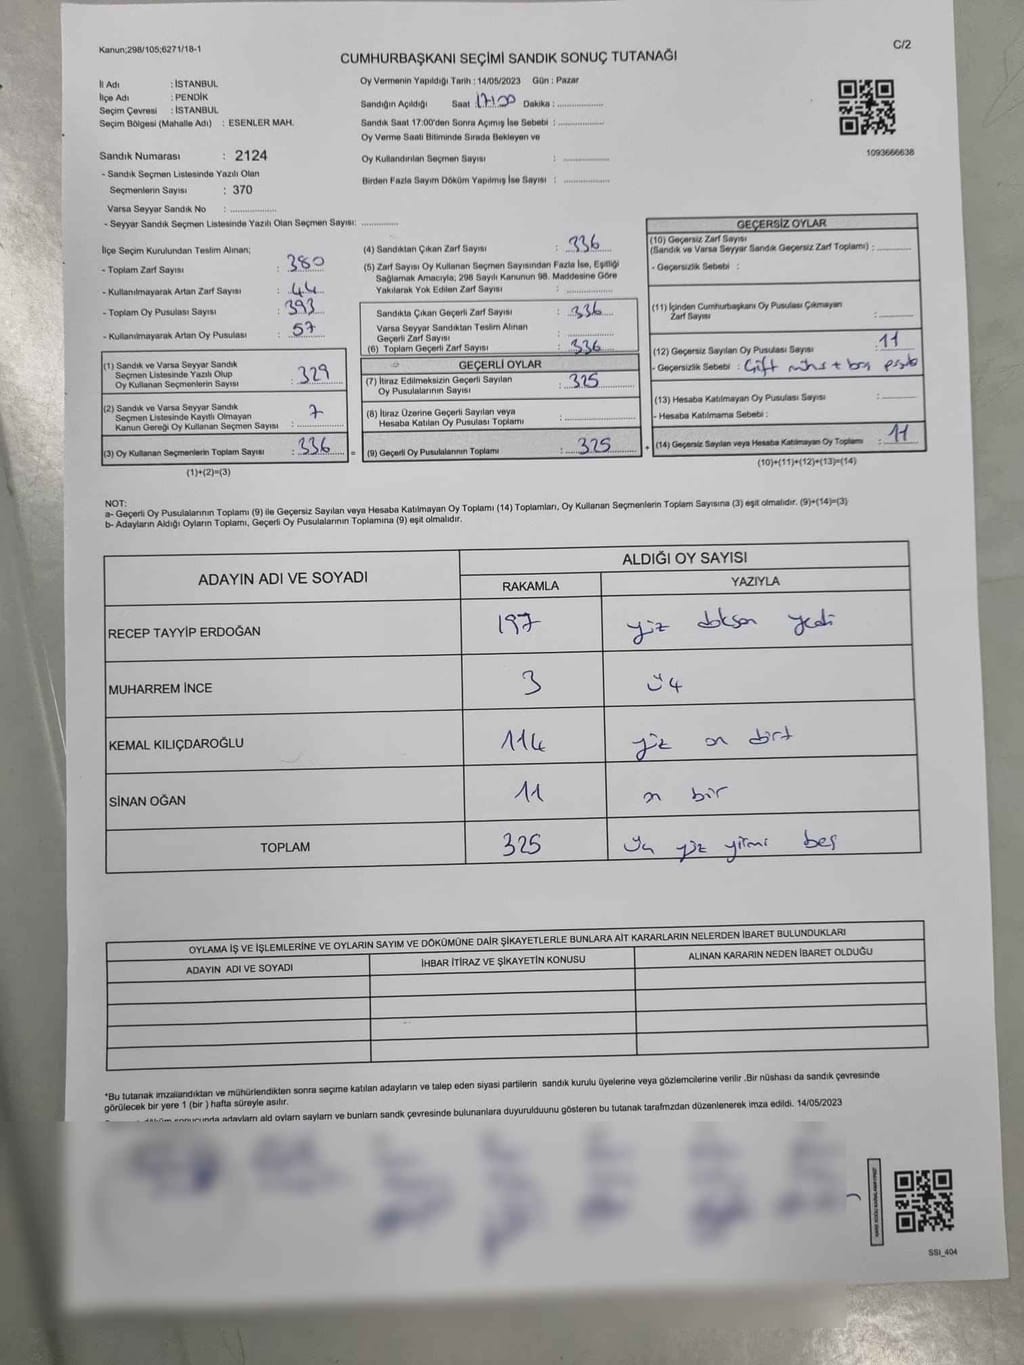 Kanun;298/105;6271/18-1
C/2
CUMHURBAŞKANI SEÇİMİ SANDIK SONUÇ TUTANAĞI
İl Adı : İSTANBUL
İlçe Adı : PENDİK
Seçim Çevresi : İSTANBUL
Seçim Bölgesi (Mahalle Adı) : ESENLER MAH.
Oy Vermenin Yapıldığı Tarih : 14/05/2023 Gün : Pazar
Sandığın Açıldığı Saat 17:00 Dakika : ..................
Sandık Saat 17:00'den Sonra Açımış İse Sebebi : ..................
Oy Verme Saati Bitiminde Sırada Bekleyen ve
Oy Kullandırılan Seçmen Sayısı : ..................
Birden Fazla Sayım Döküm Yapılmış İse Sayısı : ..................
1093666638
Sandık Numarası : 2124
- Sandık Seçmen Listesinde Yazılı Olan
Seçmenlerin Sayısı : 370
Varsa Seyyar Sandık No : ..................
- Seyyar Sandık Seçmen Listesinde Yazılı Olan Seçmen Sayısı: ..............
İlçe Seçim Kurulundan Teslim Alınan;
- Toplam Zarf Sayısı : 380
- Kullanılmayarak Artan Zarf Sayısı : 44
- Toplam Oy Pusulası Sayısı : 393
- Kullanılmayarak Artan Oy Pusulası : 57
(1) Sandık ve Varsa Seyyar Sandık
Seçmen Listesinde Yazılı Olup
Oy Kullanan Seçmenlerin Sayısı : 329
(2) Sandık ve Varsa Seyyar Sandık
Seçmen Listesinde Kayıtlı Olmayan
Kanun Gereği Oy Kullanan Seçmen Sayısı : 7
(3) Oy Kullanan Seçmenlerin Toplam Sayısı : 336 =
(1)+(2)=(3)
(4) Sandıktan Çıkan Zarf Sayısı : 336
(5) Zarf Sayısı Oy Kullanan Seçmen Sayısından Fazla İse, Eşitliği
Sağlamak Amacıyla; 298 Sayılı Kanunun 98. Maddesine Göre
Yakılarak Yok Edilen Zarf Sayısı : ..................
Sandıkta Çıkan Geçerli Zarf Sayısı : 336
Varsa Seyyar Sandıktan Teslim Alınan
Geçerli Zarf Sayısı : ..................
(6) Toplam Geçerli Zarf Sayısı : 336
GEÇERLİ OYLAR
(7) İtiraz Edilmeksizin Geçerli Sayılan
Oy Pusulalarının Sayısı : 325
(8) İtiraz Üzerine Geçerli Sayılan veya
Hesaba Katılan Oy Pusulası Toplamı : ..................
(9) Geçerli Oy Pusulalarının Toplamı : 325 +
GEÇERSİZ OYLAR
(10) Geçersiz Zarf Sayısı
(Sandık ve Varsa Seyyar Sandık Geçersiz Zarf Toplamı) : ..........
- Geçersizlik Sebebi :
(11) İçinden Cumhurbaşkanı Oy Pusulası Çıkmayan
Zarf Sayısı : ..........
(12) Geçersiz Sayılan Oy Pusulası Sayısı : 11
- Geçersizlik Sebebi : Çift mühür + boş
(13) Hesaba Katılmayan Oy Pusulası Sayısı : ..........
- Hesaba Katılmama Sebebi :
(14) Geçersiz Sayılan veya Hesaba Katılmayan Oy Toplamı : 11
(10)+(11)+(12)+(13)=(14)
NOT:
a- Geçerli Oy Pusulalarının Toplamı (9) ile Geçersiz Sayılan veya Hesaba Katılmayan Oy Toplamı (14) Toplamları, Oy Kullanan Seçmenlerin Toplam Sayısına (3) eşit olmalıdır. (9)+(14)=(3)
b- Adayların Aldığı Oyların Toplamı, Geçerli Oy Pusulalarının Toplamına (9) eşit olmalıdır.
ADAYIN ADI VE SOYADI
ALDIĞI OY SAYISI
RAKAMLA YAZIYLA
RECEP TAYYİP ERDOĞAN 197 yüz doksan yedi
MUHARREM İNCE 3 üç
KEMAL KILIÇDAROĞLU 114 yüz on dört
SİNAN OĞAN 11 on bir
TOPLAM 325 üç yüz yirmi beş
OYLAMA İŞ VE İŞLEMLERİNE VE OYLARIN SAYIM VE DÖKÜMÜNE DAİR ŞİKAYETLERLE BUNLARA AİT KARARLARIN NELERDEN İBARET BULUNDUKLARI
ADAYIN ADI VE SOYADI İHBAR İTİRAZ VE ŞİKAYETİN KONUSU ALINAN KARARIN NEDEN İBARET OLDUĞU
*Bu tutanak imzalandıktan ve mühürlendikten sonra seçime katılan adayların ve talep eden siyasi partilerin sandık kurulu üyelerine veya gözlemcilerine verilir .Bir nüshası da sandık çevresinde
görülecek bir yere 1 (bir ) hafta süreyle asılır.
adayların ald oyların sayların ve bunların sandk çevresinde bulunanlara duyurulduunu gösteren bu tutanak tarafmzdan düzenlenerek imza edildi. 14/05/2023
SSI_404